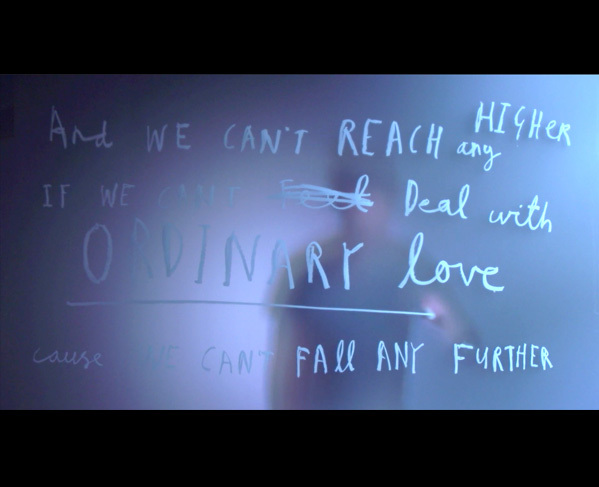 And WE CAN'T REACH any HIGHER
IF WE CAN'T Feel Deal with
ORDINARY love
cause WE CAN'T FAll ANY FURTHER